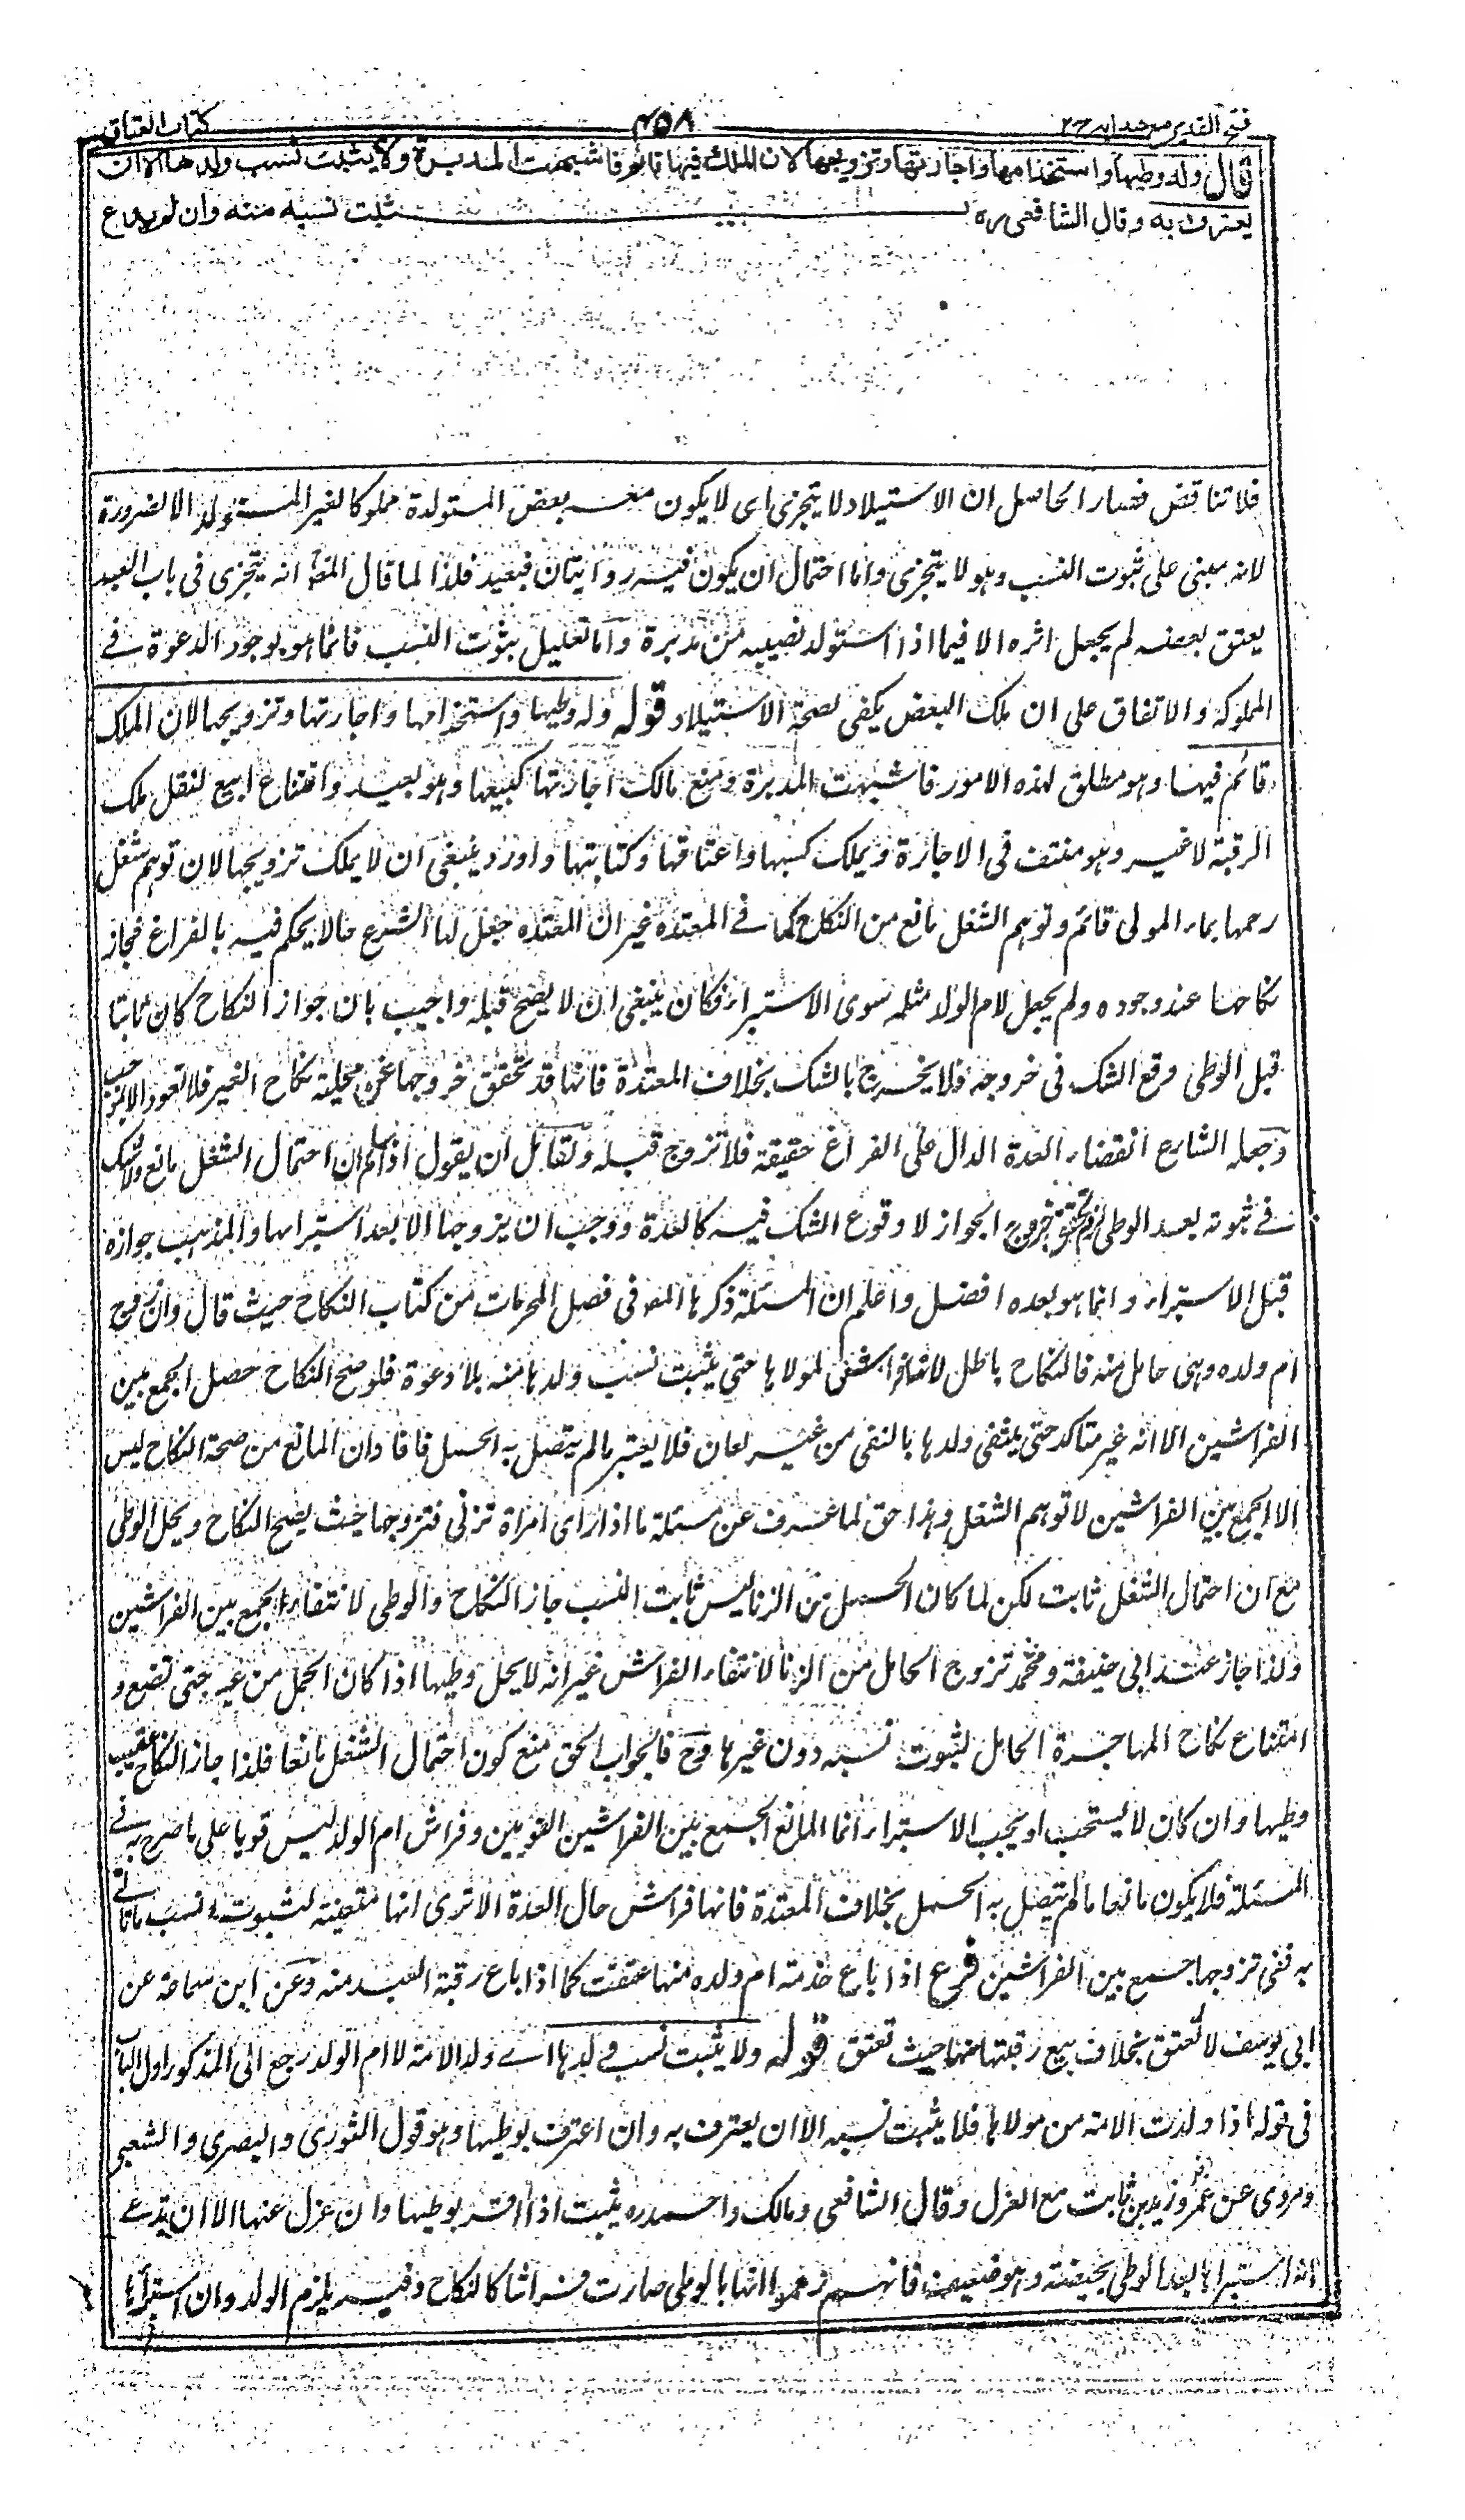 فتح القدير مع هدايه ج٢
٤٥٨
كتاب العتاق
قال وله وطيها واستخدامها واجارتها وتزويجها لان الملك فيها قائم فاشبهت المدبرة ولا يثبت نسب ولدها الا ان
يعترف به وقال الشافعي ره يثبت نسبه منه وان لم يدع
فلا تناقض فصار الحاصل ان الاستيلاد لا يتجزى اى لا يكون معه بعض المستولدة مملوكا لغير المستولد الا لضرورة
لانه مبنى على ثبوت النسب وهو لا يتجزى واما احتمال ان يكون فيه روايتان فبعيد فلذا لما قال المص انه يتجزى فى باب العبد
يعتق بعضه لم يجعل اثره الا فيما اذا استولد نصيبه من مدبرة واما تعليل بثوت النسب فانما هو بوجود الدعوة فے
المملوكة والاتفاق على ان ملك البعض يكفى لصحة الاستيلاد قوله وله وطيها واستخدامها واجارتها وتزويجها لان الملك
قائم فيها وهو مطلق لهذه الامور فاشبهت المدبرة ومنع مالك اجارتها كبيعها وهو بعيد وامتناع البيع لنقل ملك
الرقبة لا غير وهو منتف فى الاجارة ويملك كسبها واعتاقها وكتابتها واورد ينبغى ان لا يملك تزويجها لان توهم شغل
رحمها بماء المولى قائم وتوهم الشغل مانع من النكاح كما فے المعتدة غير ان المعتدة جعل لها الشرع حالا يحكم فيه بالفراغ فجاز
نكاحها عند وجوده ولم يجعل لام الولد مثله سوى الاستبراء فكان ينبغى ان لا يصح قبله واجيب بان جواز النكاح كان ثابتا
قبل الوطى وقع الشك فى خروجه فلا يخرج بالشك بخلاف المعتدة فانها قد تحقق خروجها عن محلية نكاح الغير فلا تعود الا بموجب
وجعله الشارع انقضاء العدة الدال على الفراغ حقيقة فلا تزوج قبله ولقائل ان يقول اذا سلم ان احتمال الشغل مانع ولا شك
فے ثبوته بعد الوطى لزم تحقق خروج الجواز لا وقوع الشك فيه كالعدة ووجب ان يزوجها الا بعد استبرائها والمذهب جوازه
قبل الاستبراء وانما هو بعده افضل واعلم ان المسئلة ذكرها المص فى فصل المحرمات من كتاب النكاح حيث قال وان زوج
ام ولده وهى حامل منه فالنكاح باطل لانها فراش لمولاها حتى يثبت نسب ولدها منه بلا دعوة فلو صح النكاح حصل الجمع بين
الفراشين الا انه غير متاكد حتى ينتفى ولدها بالنفى من غير لعان فلا يعتبر ما لم يتصل به الحبل فافاد ان المانع من صحة النكاح ليس
الا الجمع بين الفراشين لا توهم الشغل وهذا حق لما عرف عن مسئلة ما اذا راى امراة تزنى فتزوجها حيث يصح النكاح ويحل الوطى
مع ان احتمال الشغل ثابت لكن لما كان الحبل من الزنا ليس ثابت النسب جاز النكاح والوطى لانتفاء الجمع بين الفراشين
ولذا جاز عند ابى حنيفة ومحمد تزوج الحامل من الزنا لانتفاء الفراش غير انه لا يحل وطيها اذا كان الحمل من غيره حتى تضع و
امتناع نكاح المهاجرة الحامل لثبوت نسبه دون غيرها وح فالجواب الحق منع كون احتمال الشغل مانعا فلذا جاز النكاح عقيب
وطيها وان كان لا يستحب او يجب الاستبراء انما المانع الجمع بين الفراشين القويين وفراش ام الولد ليس قويا على ما صرح به فے
المسئلة فلا يكون مانعا ما لم يتصل به الحبل بخلاف المعتدة فانها فراش حال العدة الا ترى انها متعينة لثبوت نسب ما تاتے
به ففى تزوجها جمع بين الفراشين فرع اذا باع خدمة ام ولده منها عتقت كما اذا باع رقبة العبد منه وعن ابن سماعة عن
ابى يوسف لا تعتق بخلاف بيع رقبتها منها حيث تعتق قوله ولا يثبت نسب ولدها اے ولد الامة لا ام الولد رجع الى المذكور اول الباب
فى قوله اذا ولدت الامة من مولاها فلا يثبت نسبه الا ان يعترف به وان اعترف بوطيها وهو قول الثورى والبصرى والشعبى
ومروى عن عمر وزيد بن ثابت مع العزل وقال الشافعى ومالك واحمد ره يثبت اذا اقر بوطيها وان عزل عنها الا ان يدعے
انه استبراها بعد الوطى بحيضة وهو ضعيف فانهم زعموا انها بالوطى صارت فراشا كالنكاح وفيه يلزم الولد وان استبراها